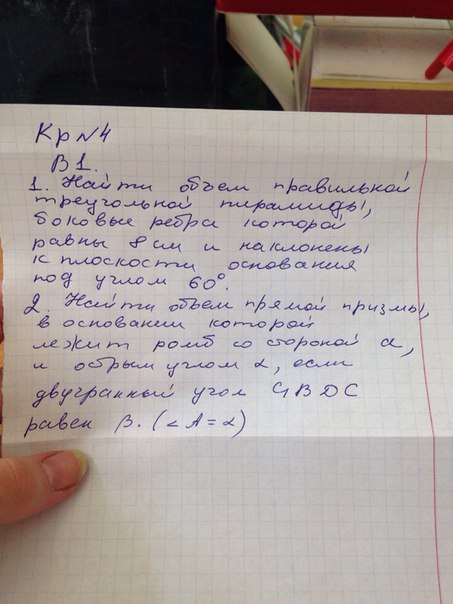 Кр №4
В1.
1. Найти объем правильной
треугольной пирамиды,
боковые ребра которой
равны 8 см и наклонены
к плоскости основания
под углом 60°.
2. Найти объем прямой призмы,
в основании которой
лежит ромб со стороной a,
и острым углом α, если
двугранный угол C₁BDC
равен β. (∠A = α)